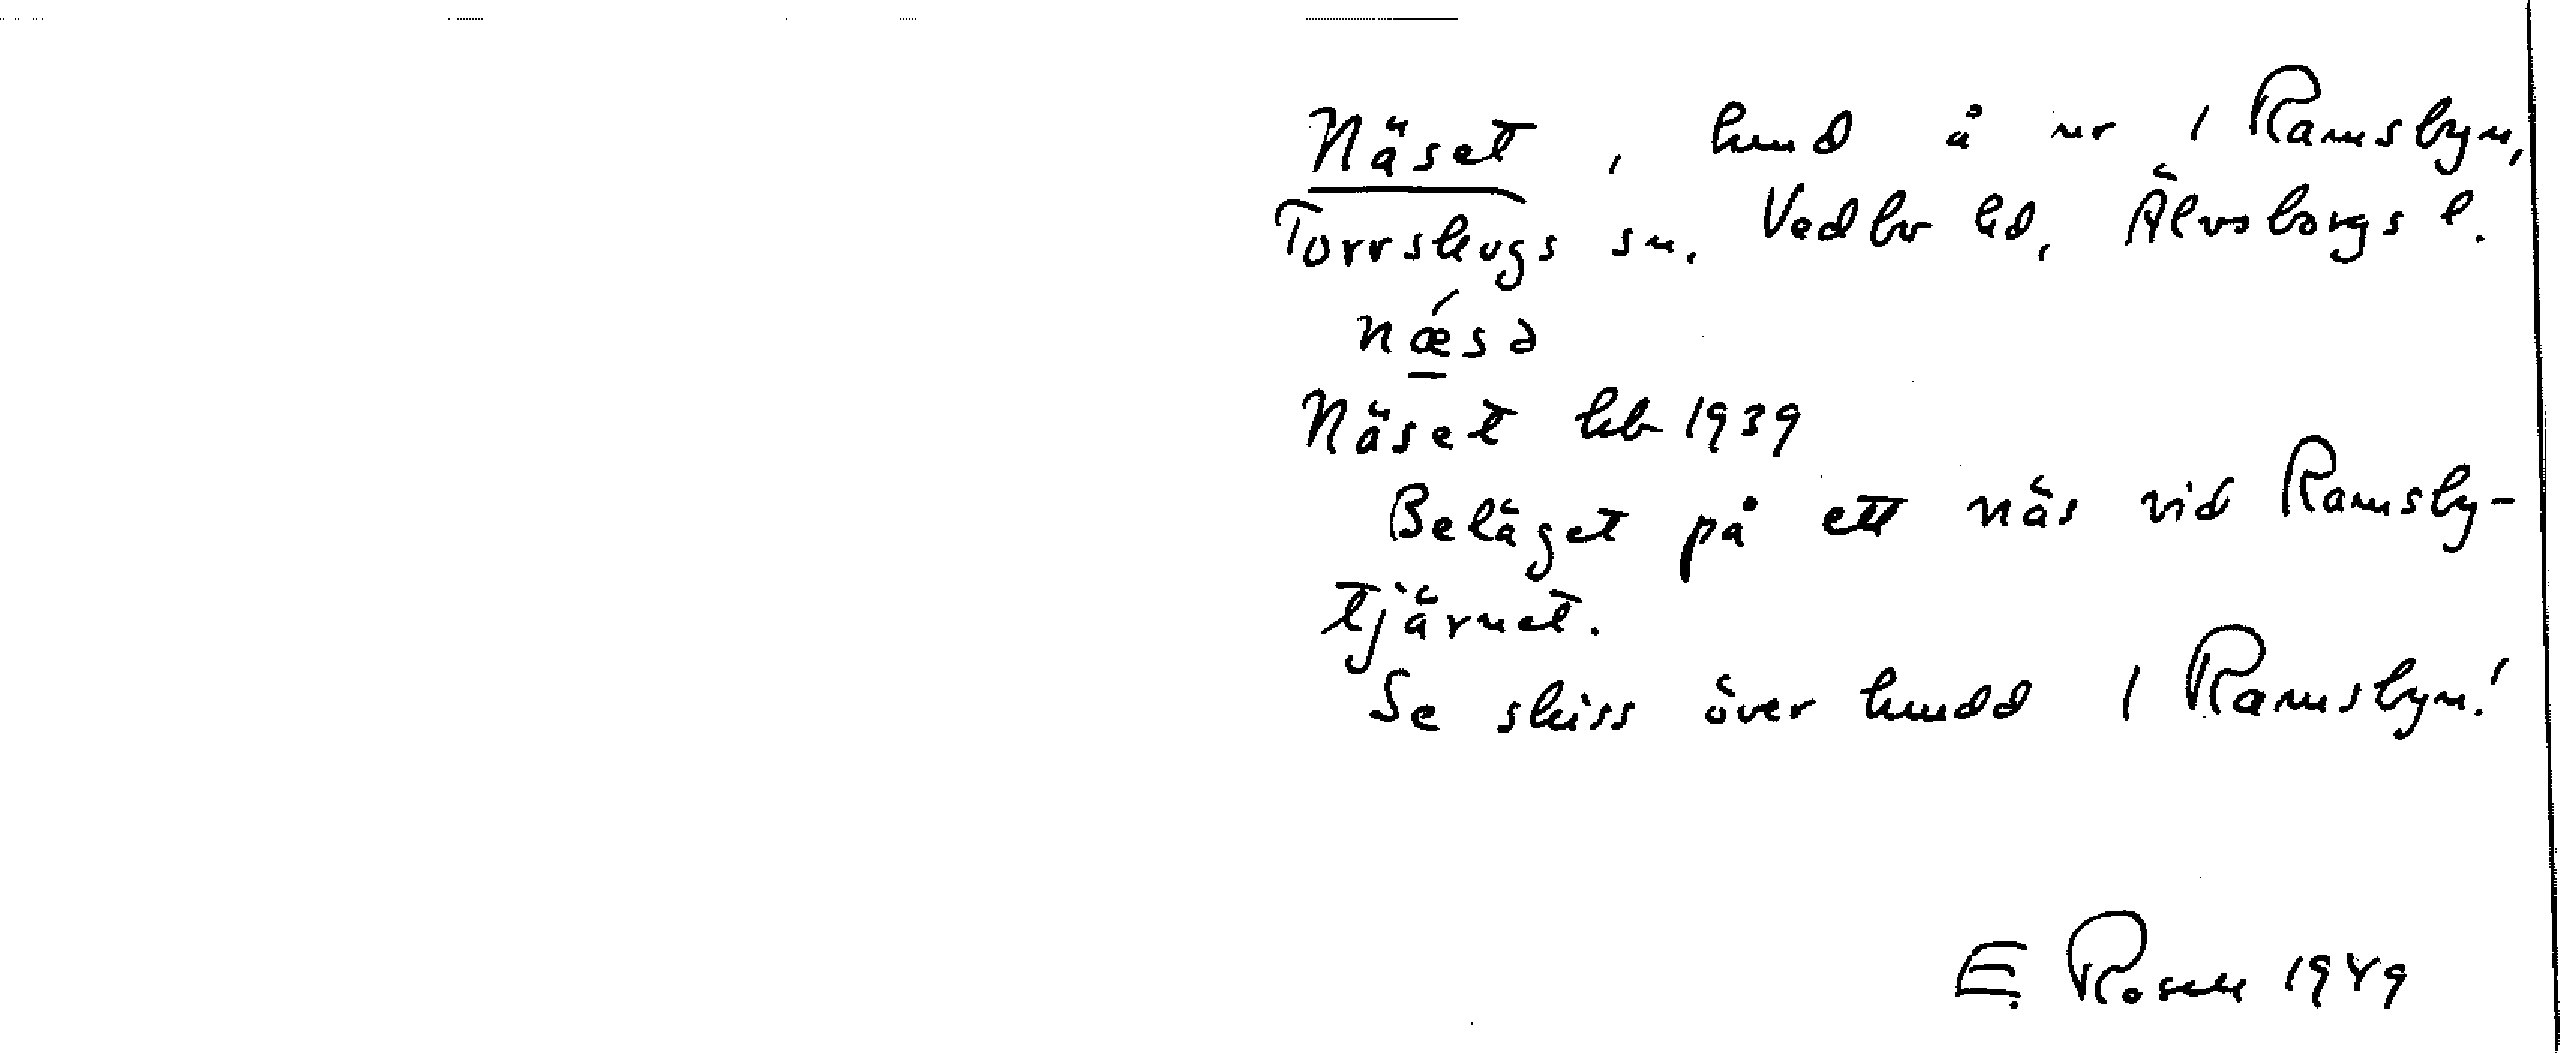 Näset, lmd å nr 1 Ramsbyn,
Torrskogs sn, Vedbo hd, Älvsborgs l.
nǽsə
Näset kb 1939
Beläget på ett näs vid Ramsby-
tjärnet.
Se skiss över lmdd 1 Ramsbyn!
E. Rosell 1949